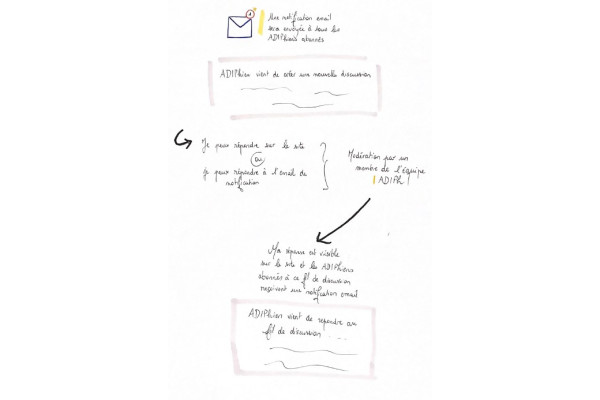 Une notification email
sera envoyée à tous les
ADIPhiens abonnés
ADIPhien vient de créer une nouvelle discussion
Je peux répondre sur le site
ou
je peux répondre à l'email de
notification
Modération par un
membre de l'équipe
ADIPh
Ma réponse est visible
sur le site et les ADIPhiens
abonnés à ce fil de discussion
reçoivent une notification email
ADIPhien vient de répondre au
fil de discussion ....